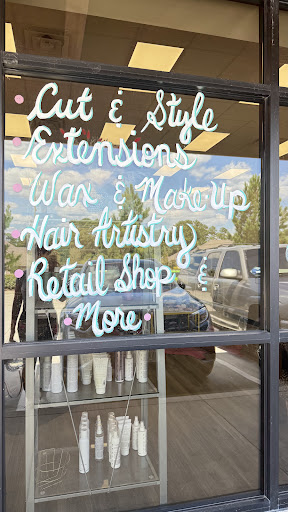 • Cut & Style
• Extensions
• Wax & Make Up
• Hair Artistry
• Retail Shop &
• More •